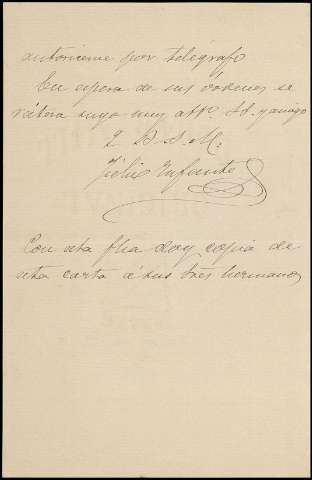 autoriceme por telégrafo
En espera de sus órdenes se
reitera suyo muy affº. SS. y amigo
Q B S M.
Félix Infante
Con esta fha doy copia de
esta carta á sus tres hermanos